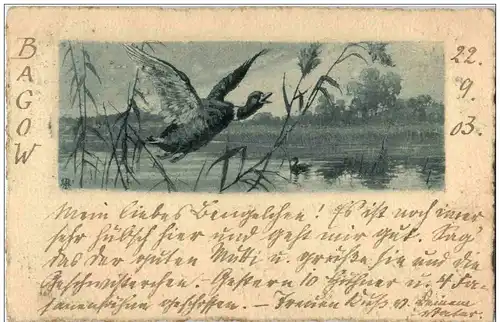 BAGOW
22.
9.
03.
Mein liebes Bengelchen! Es ist noch imer
sehr hübsch hier und geht mir gut. Sag'
das der guten Mutti u. grüße sie und die
Geschwisterchen. Gestern 10 Hühner u. 4 Fa-
sanenhähne geschossen. – Treuen Kuß v. Deinem
Vater.